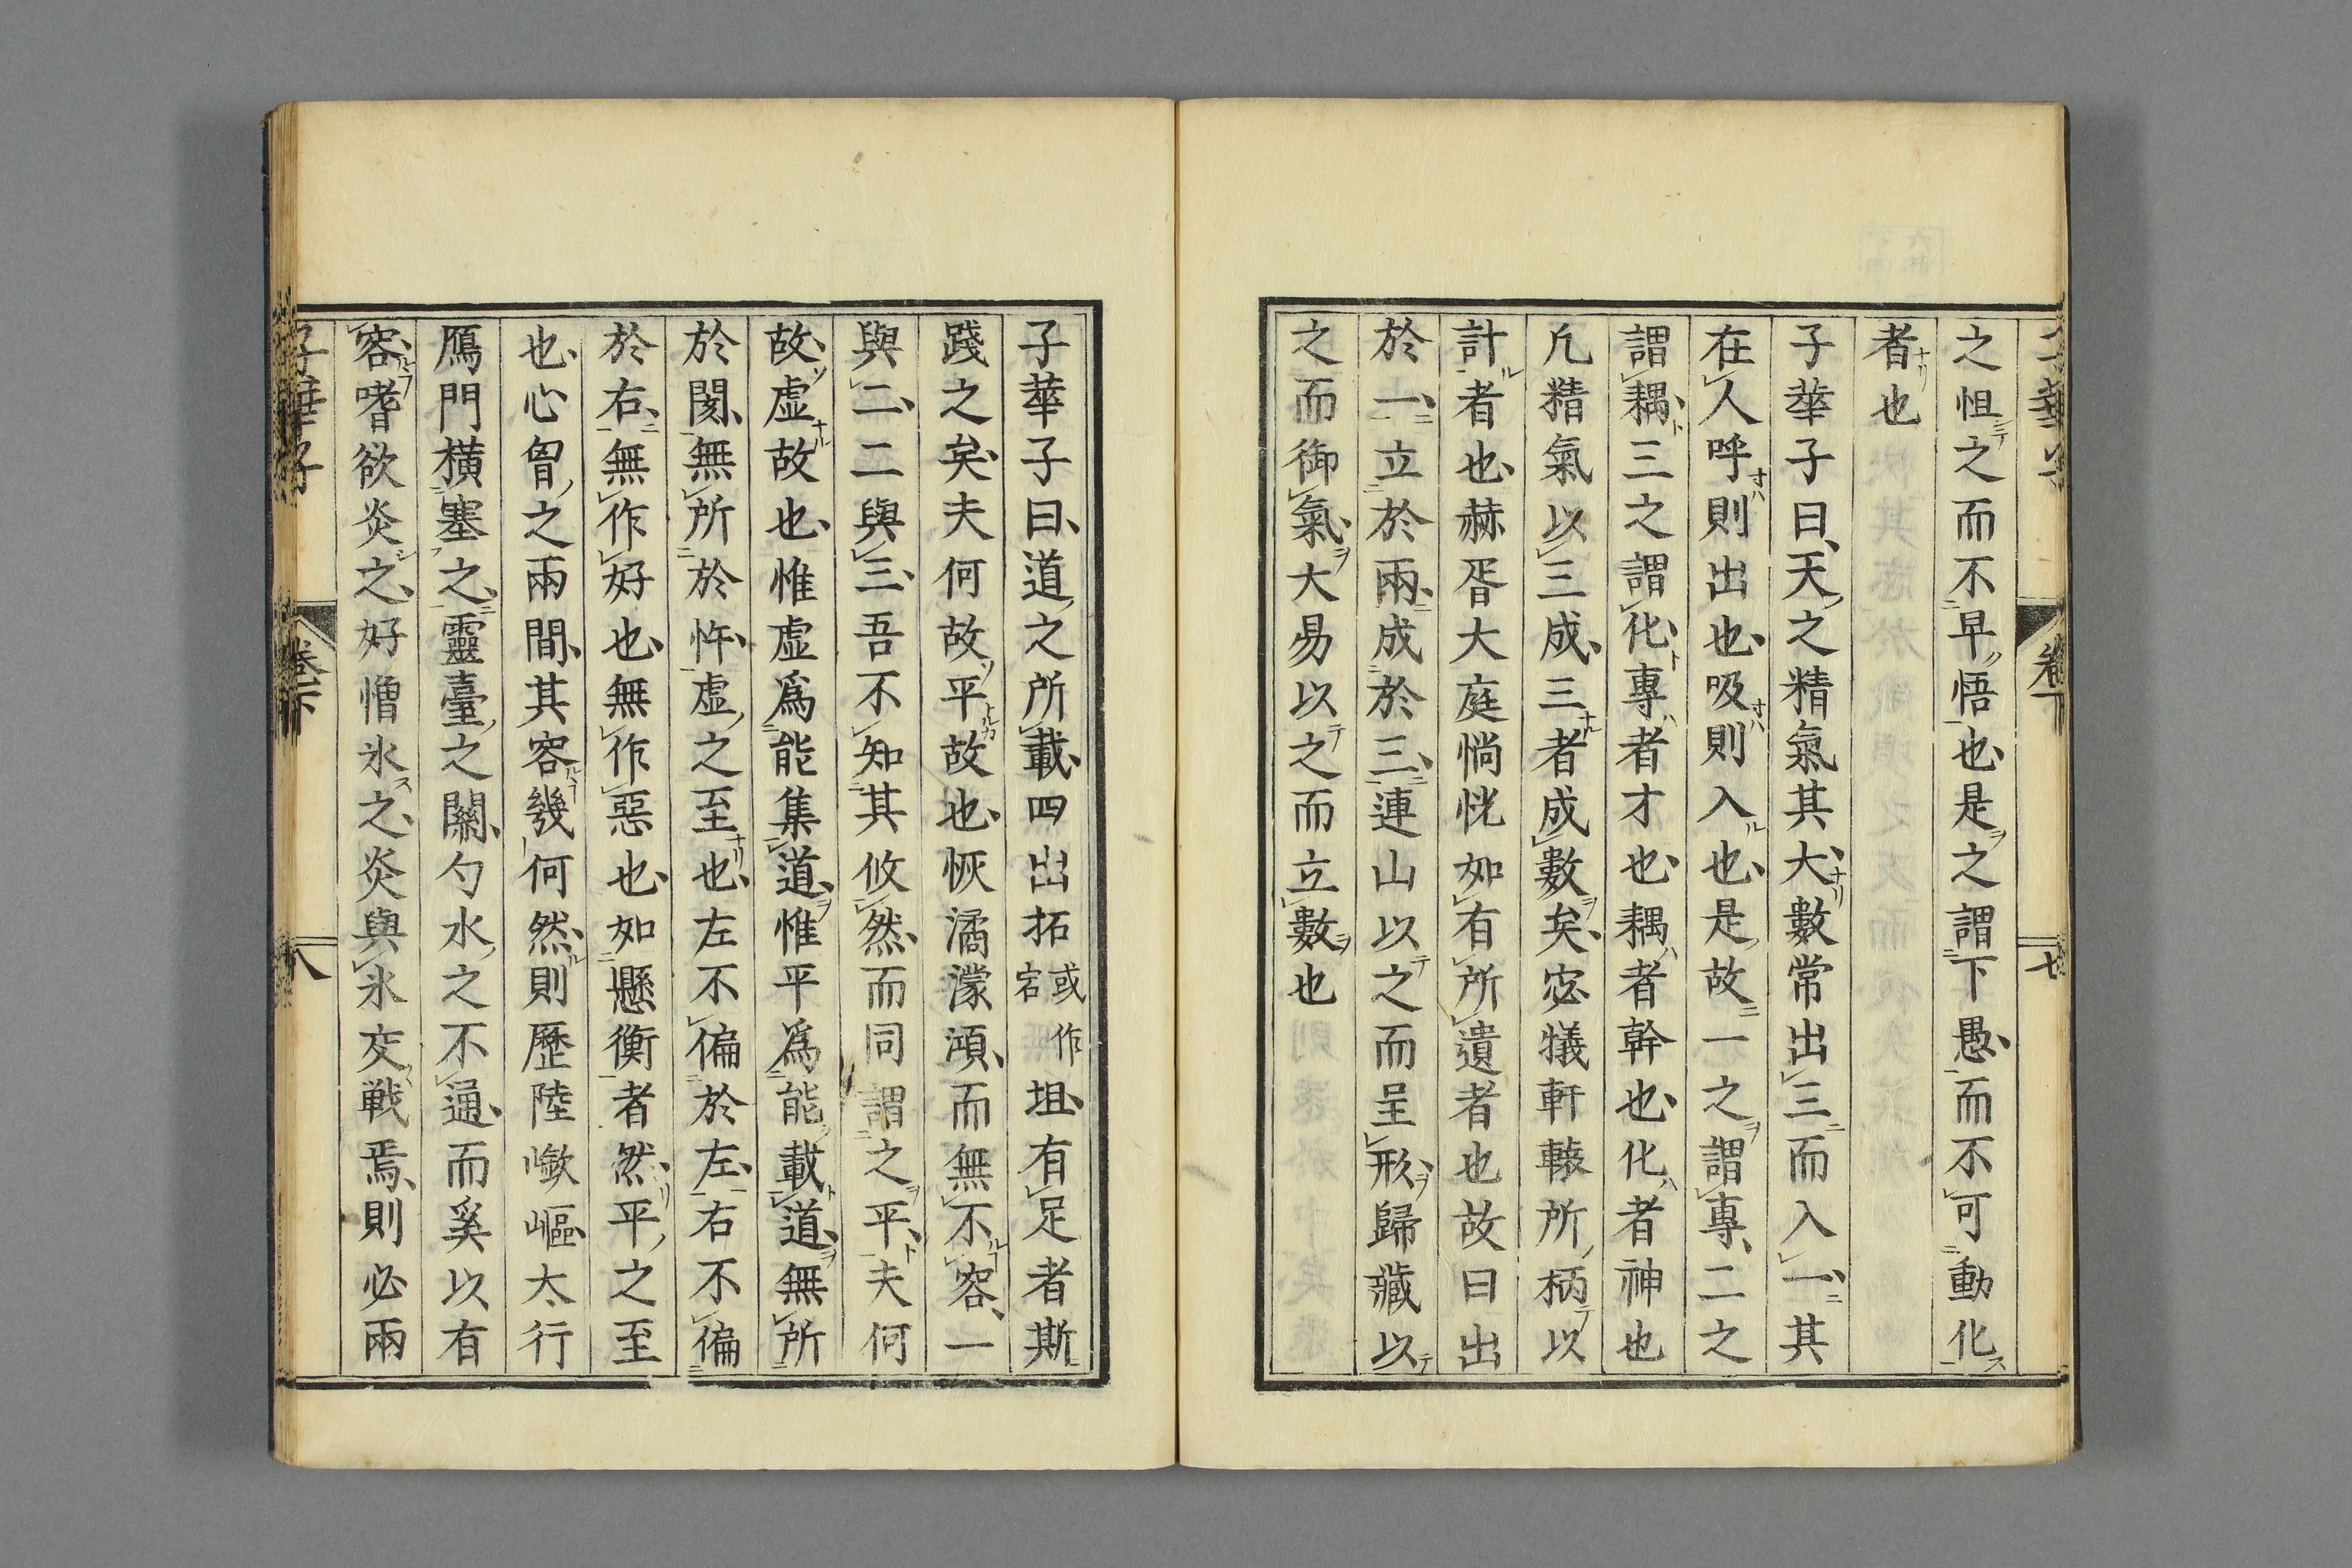 之怛之而不早悟也是之謂下愚而不可動化
者也
子華子曰天之精氣其大數常出三而入一其
在人呼則出也吸則入也是故一之謂專二之
謂耦三之謂化專者才也耦者幹也化者神也
凡精氣以三成三者成數矣宓犧軒轅所柄以
計者也赫胥大庭惝恍如有所遺者也故曰出
於一立於兩成於三連山以之而呈形歸藏以
之而御氣大易以之而立數也
子華子曰道之所載四出拓或作宕坦有足者斯
踐之矣夫何故平故也恢潏濛澒而無不容一
與二二與三吾不知其攸然而同謂之平夫何
故虛故也惟虛爲能集道惟平爲能載道無所
於閡無所於忤虛之至也左不偏於左右不偏
於右無作好也無作惡也如懸衡者然平之至
也心胷之兩間其容幾何然則歷陸嶔嶇太行
鴈門橫塞之靈臺之關勺水之不通而奚以有
容嗜欲炎之好憎氷之炎與氷交戰焉則必兩
子華子
卷下
八